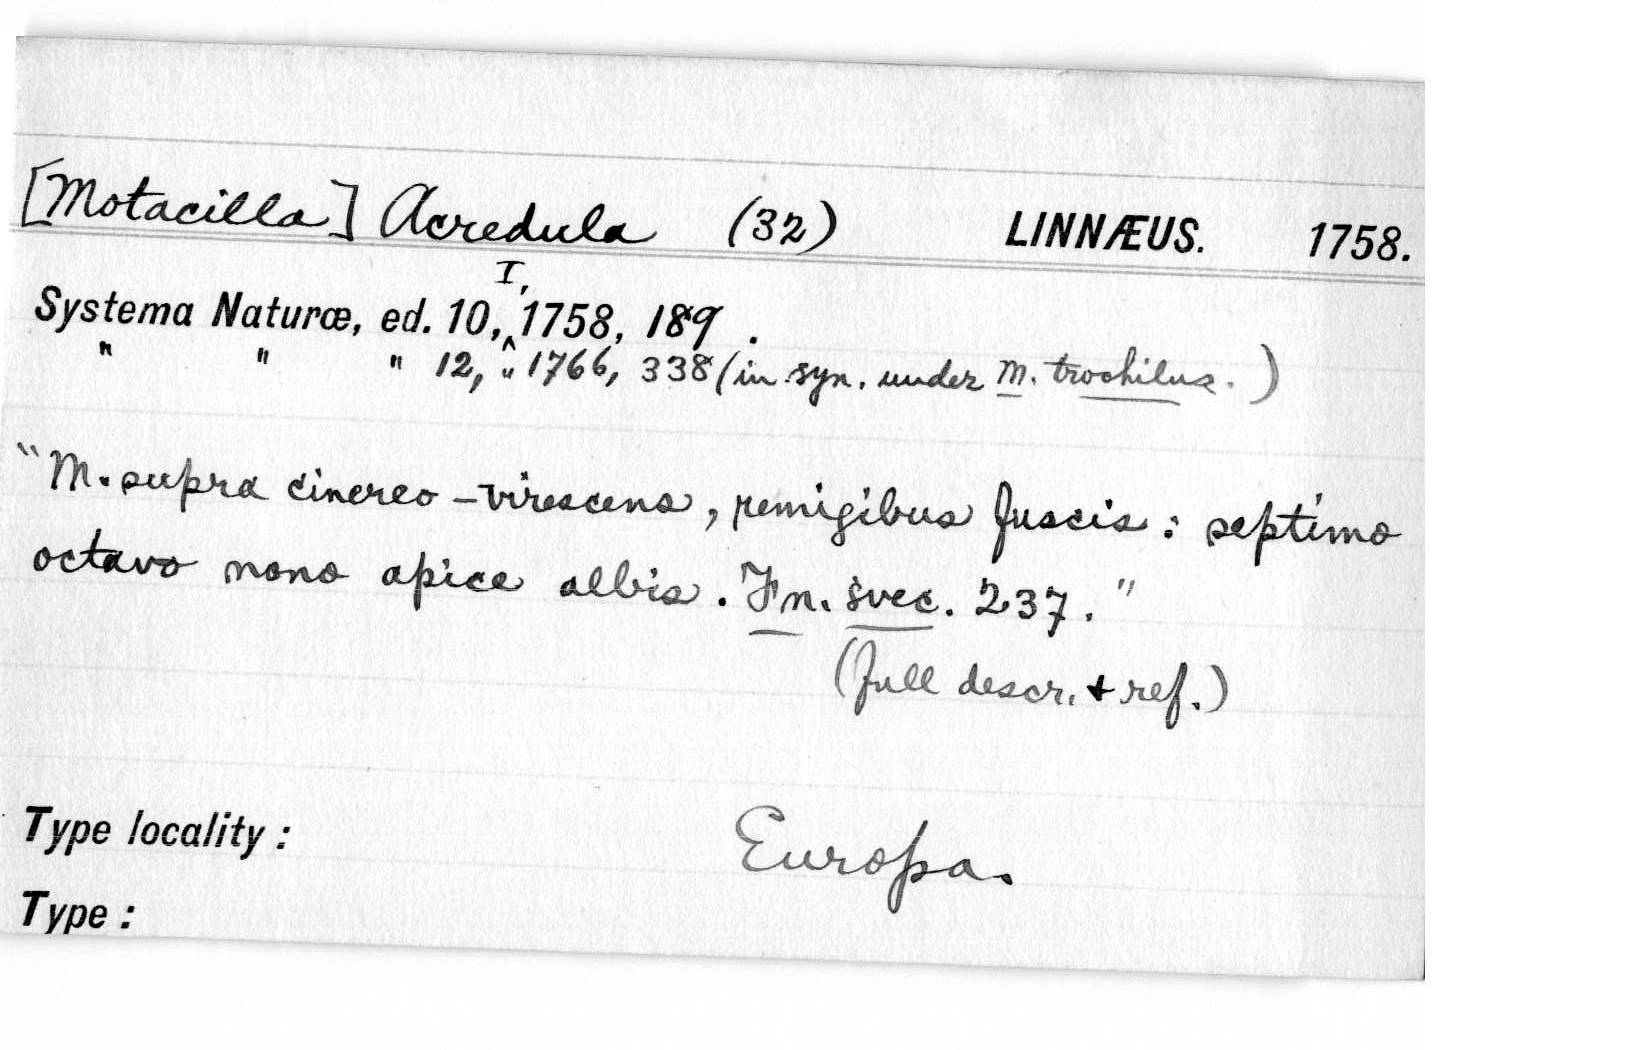 [Motacilla] Acredula (32) LINNÆUS. 1758.
Systema Naturæ, ed. 10, I, 1758, 189.
" " " 12, " 1766, 338 (in syn. under M. trochilus.)
"M. supra cinereo-virescens, remigibus fuscis: septimo
octavo nono apice albis. Fn. svec. 237."
(full descr. + ref.)
Type locality: Europa.
Type: